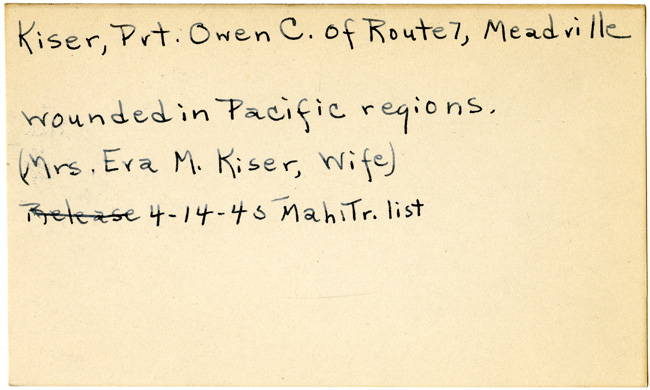 Kiser, Pvt. Owen C. of Route 7, Meadville
wounded in Pacific regions.
(Mrs. Eva M. Kiser, Wife)
Release 4-14-45 Mahi Tr. list